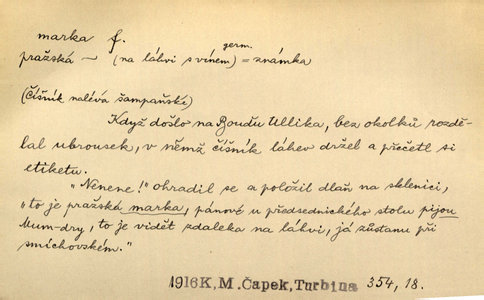 marka f.
germ.
pražská — (na láhvi s vínem) = známka
(číšník nalévá šampaňské)
Když došlo na Bouďu Ullika, bez okolků rozdě-
lal ubrousek, v němž číšník láhev držel a přečetl si
etiketu.
"Nenene!" ohradil se a položil dlaň na sklenici,
"to je pražská marka, pánové u předsednického stolu pijou
Mum-dry, to je vidět zdaleka na láhvi, já zůstanu při
smíchovském."
1916K, M. Čapek, Turbina 354, 18.